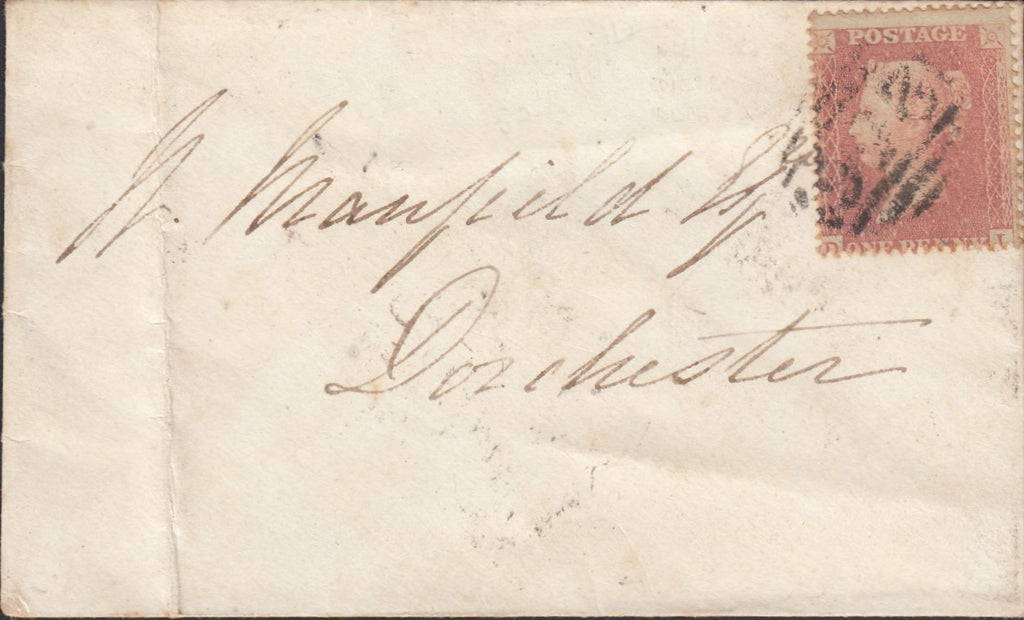 POSTAGE
ONE PENNY
W. Manfield Esq
Dorchester